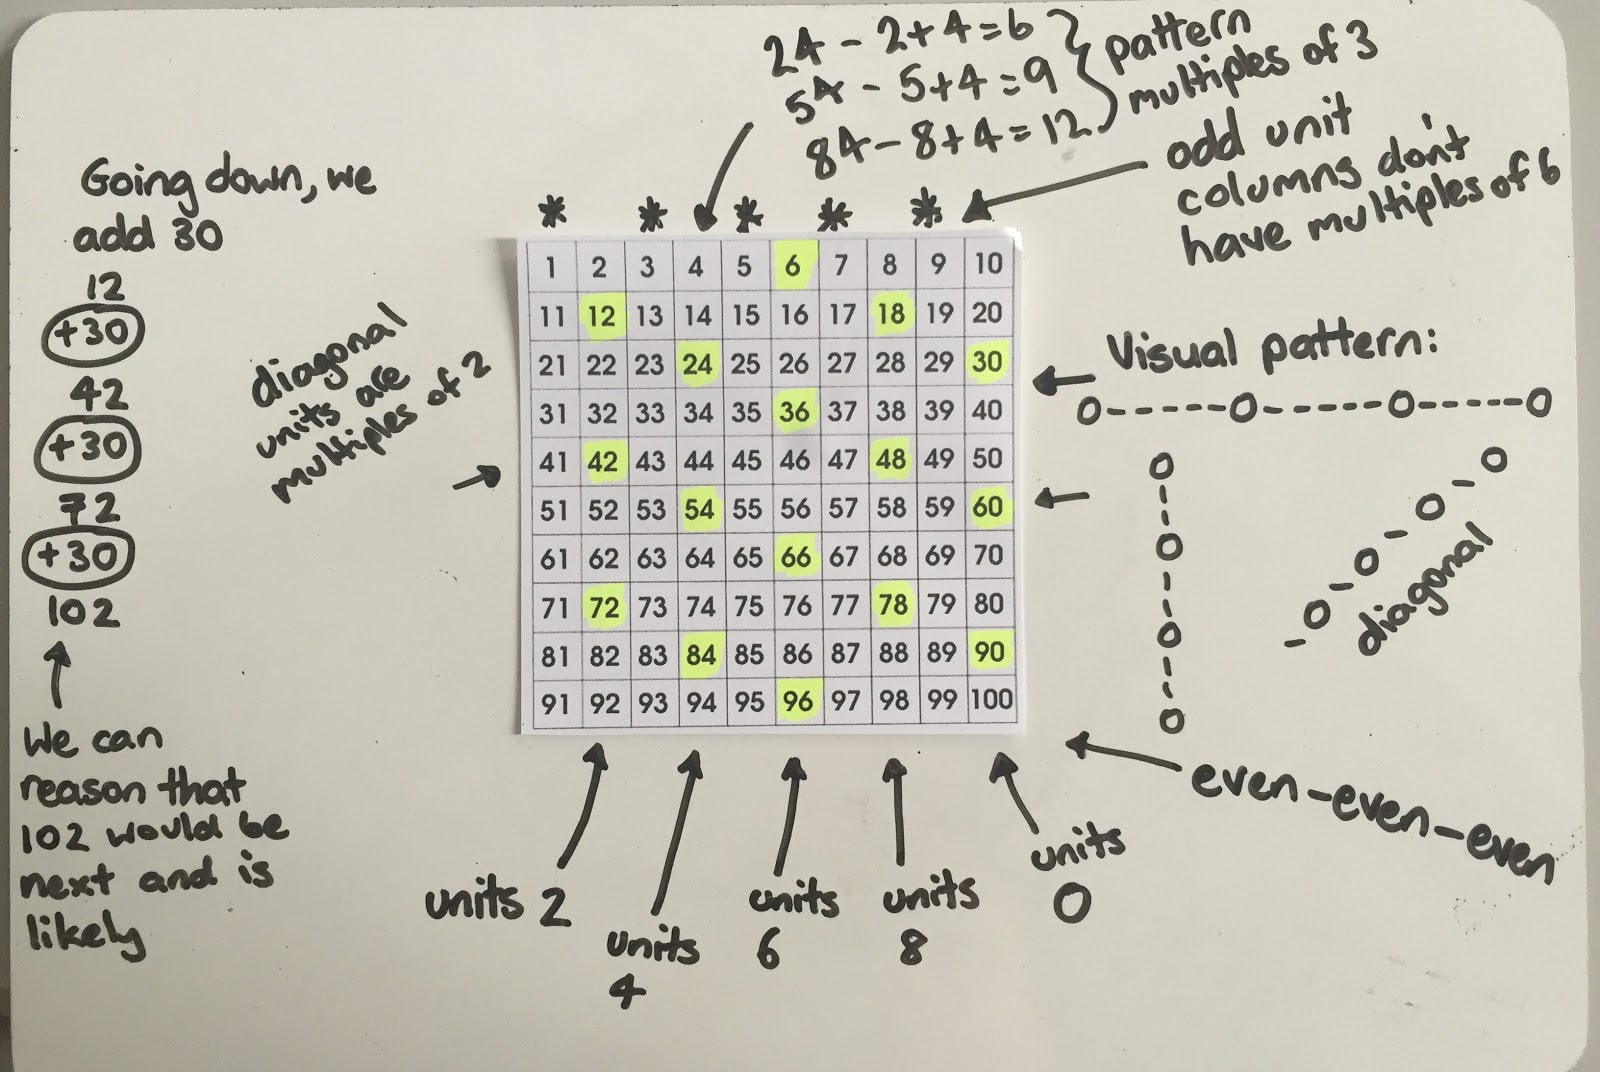 24 - 2+4=6
54 - 5+4=9
84 - 8+4=12
pattern
multiples of 3
odd unit
columns don't
have multiples of 6
Going down, we
add 30
12
+30
42
+30
72
+30
102
We can
reason that
102 would be
next and is
likely
diagonal
units are
multiples of 2
* * * * *
1 2 3 4 5 6 7 8 9 10
11 12 13 14 15 16 17 18 19 20
21 22 23 24 25 26 27 28 29 30
31 32 33 34 35 36 37 38 39 40
41 42 43 44 45 46 47 48 49 50
51 52 53 54 55 56 57 58 59 60
61 62 63 64 65 66 67 68 69 70
71 72 73 74 75 76 77 78 79 80
81 82 83 84 85 86 87 88 89 90
91 92 93 94 95 96 97 98 99 100
Visual pattern:
O-----O-----O-----O
diagonal
even-even-even
units 2
units
4
units
6
units
8
units
0